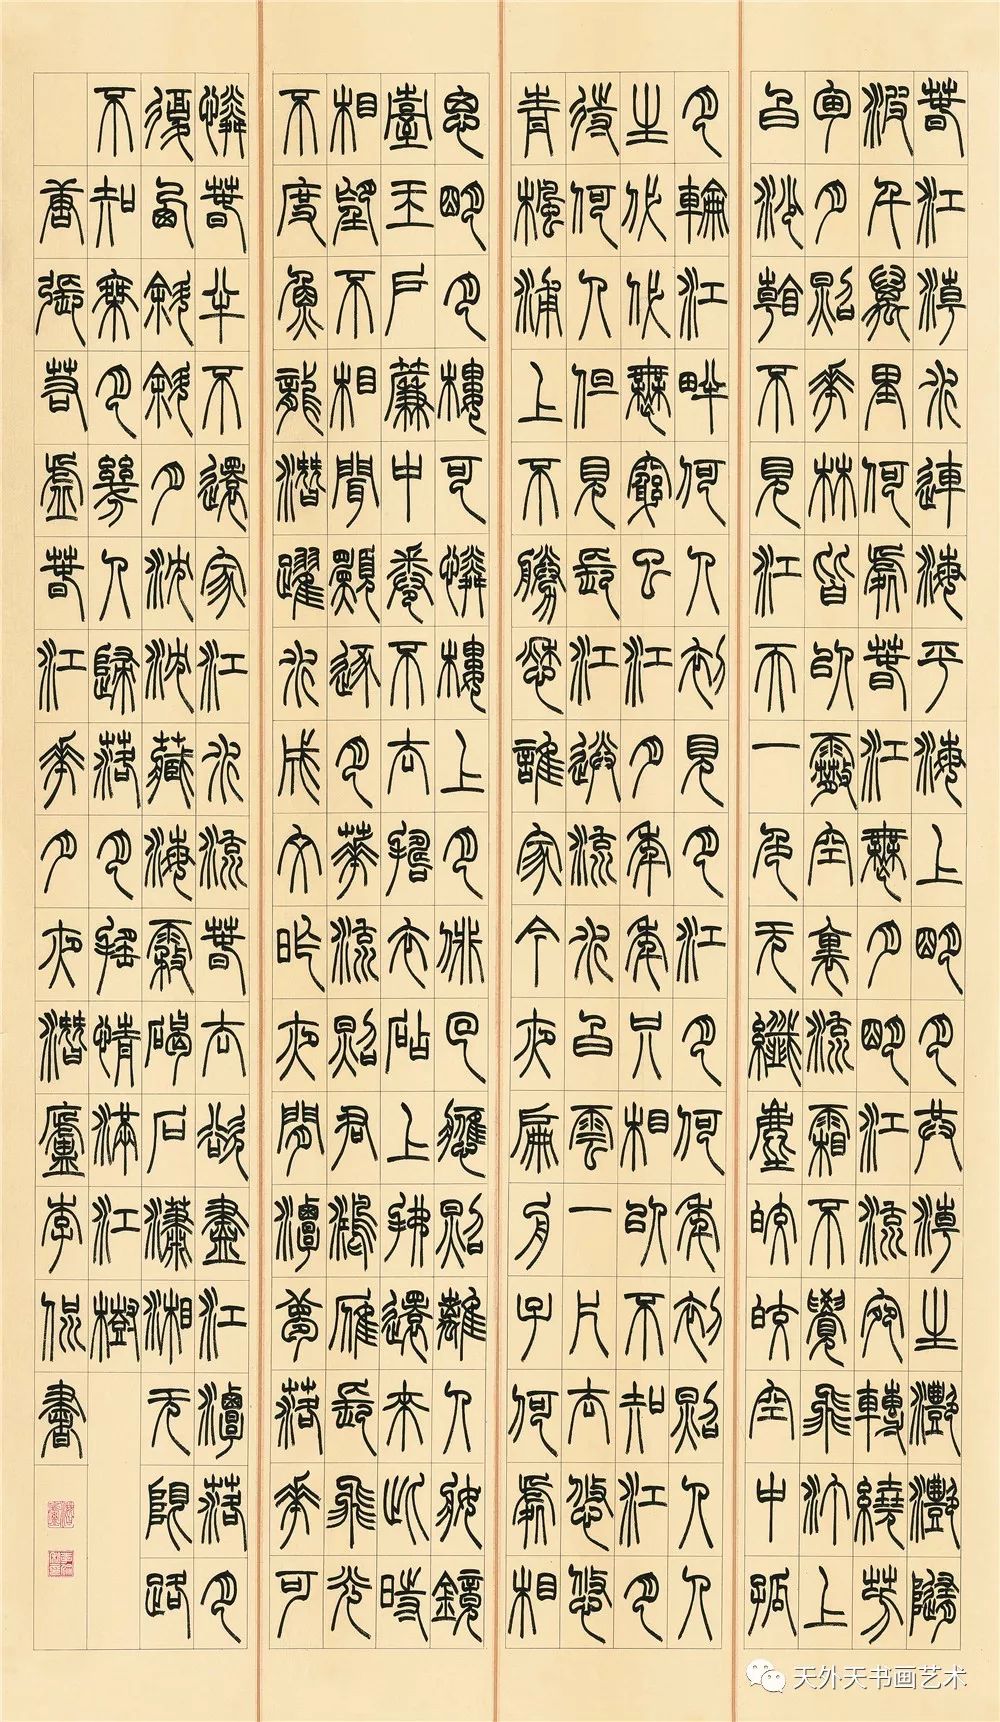 春江潮水連海平海上明月共潮生灩灩隨
波千萬里何處春江無月明江流宛轉繞芳
甸月照花林皆似霰空裏流霜不覺飛汀上
白沙看不見江天一色无纖塵皎皎空中孤
月輪江畔何人初見月江月何年初照人人
生代代無窮已江月年年只相似不知江月
待何人但見長江送流水白雲一片去悠悠
青楓浦上不勝愁誰家今夜扁舟子何處相
思明月樓可憐樓上月俳回應照離人妝鏡
臺玉戶簾中卷不去擣衣砧上拂還來此時
相望不相聞願逐月華流照君鴻雁長飛光
不度魚龍潛躍水成文昨夜閒潭夢落花可
憐春半不還家江水流春去欲盡江潭落月
復西斜斜月沈沈藏海霧碣石瀟湘无限路
不知乘月幾人歸落月搖情滿江樹
唐張若虛春江花月夜潛廬李侃書
天外天书画艺术